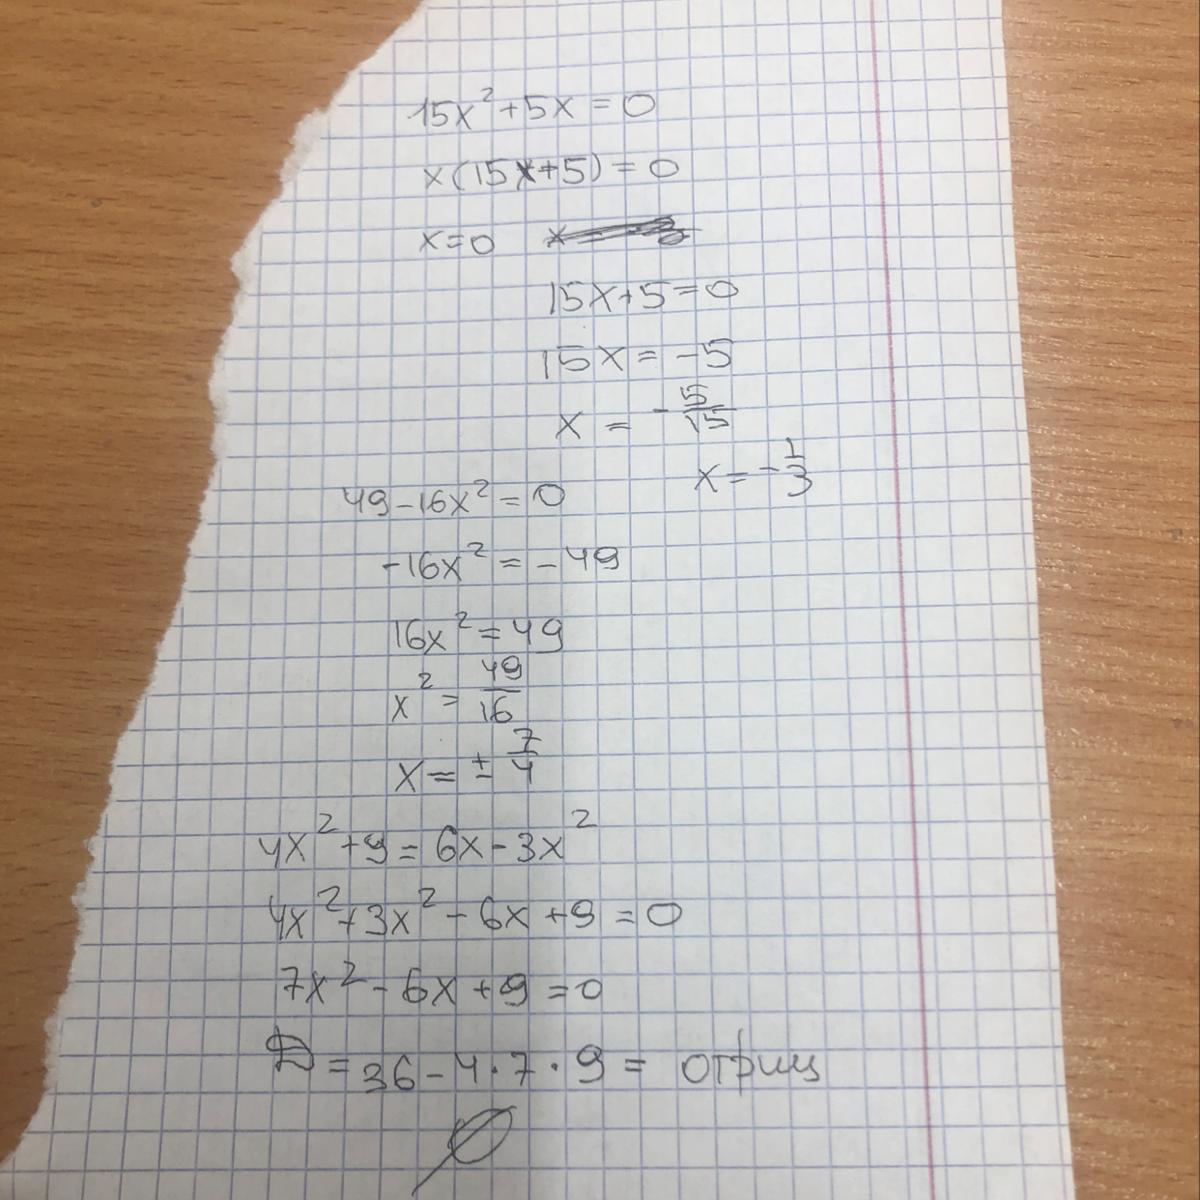 15x² + 5x = 0
x(15x+5) = 0
x=0
15x+5=0
15x = -5
x = - 5/15
x = - 1/3
49-16x² = 0
-16x² = -49
16x² = 49
x² = 49/16
x = ± 7/4
4x² + 9 = 6x - 3x²
4x² + 3x² - 6x + 9 = 0
7x² - 6x + 9 = 0
D = 36 - 4·7·9 = отриц
∅